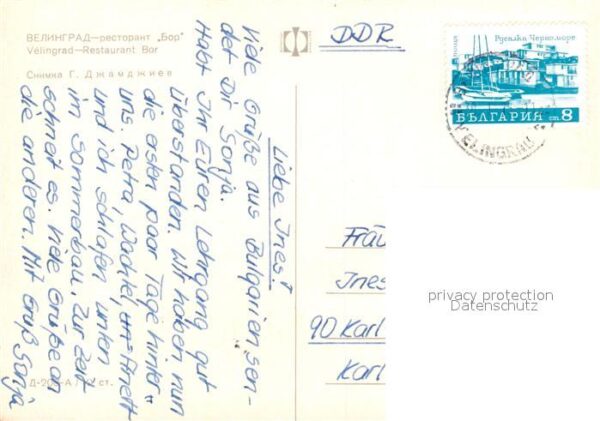 ВЕЛИНГРАД—ресторант „Бор"
Vélingrad—Restaurant Bor
Снимка Г. Джамджиев
Liebe Ines!
Viele Grüße aus Bulgarien sen-
det Dir Sonja.
Habt Ihr Euren Lehrgang gut
überstanden. Wir haben nun
die ersten paar Tage hinter
uns. Petra, Wachtel, Anett
und ich schlafen unten
im Sommerbau. Zur Zeit
schneit es. Viele Grüße an
die anderen. Mit Gruß Sonja
DDR
поща
Русалка Черноморе
БЪЛГАРИЯ ст 8
VELINGRAD
Fräu
Ines
90 Karl
Karl
privacy protection
Datenschutz